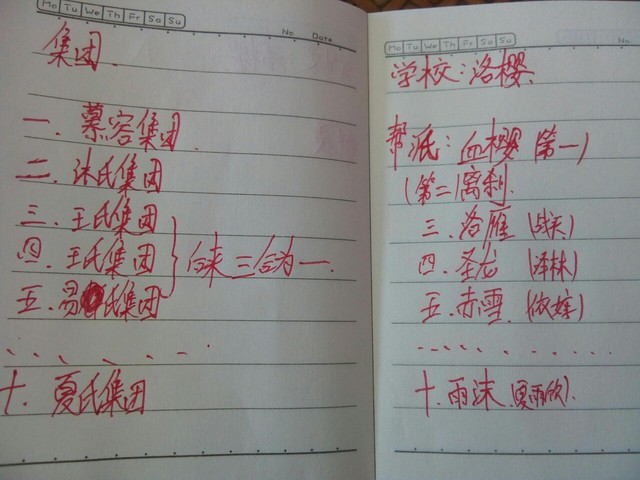 Mo Tu We Th Fr Sa Su
No. Date
集团.
一. 慕容集团.
二. 沐氏集团
三. 王氏集团
四. 王氏集团
五. 易氏集团
后来三合为一.
......
十. 夏氏集团
Mo Tu We Th Fr Sa Su
No.
学校:洛樱
帮派:血樱(第一)
(第二)离刹
三. 洛雁 (战天)
四. 圣龙 (泽林)
五. 赤雪 (依嫁)
......
十. 雨沫 (夏雨欣).